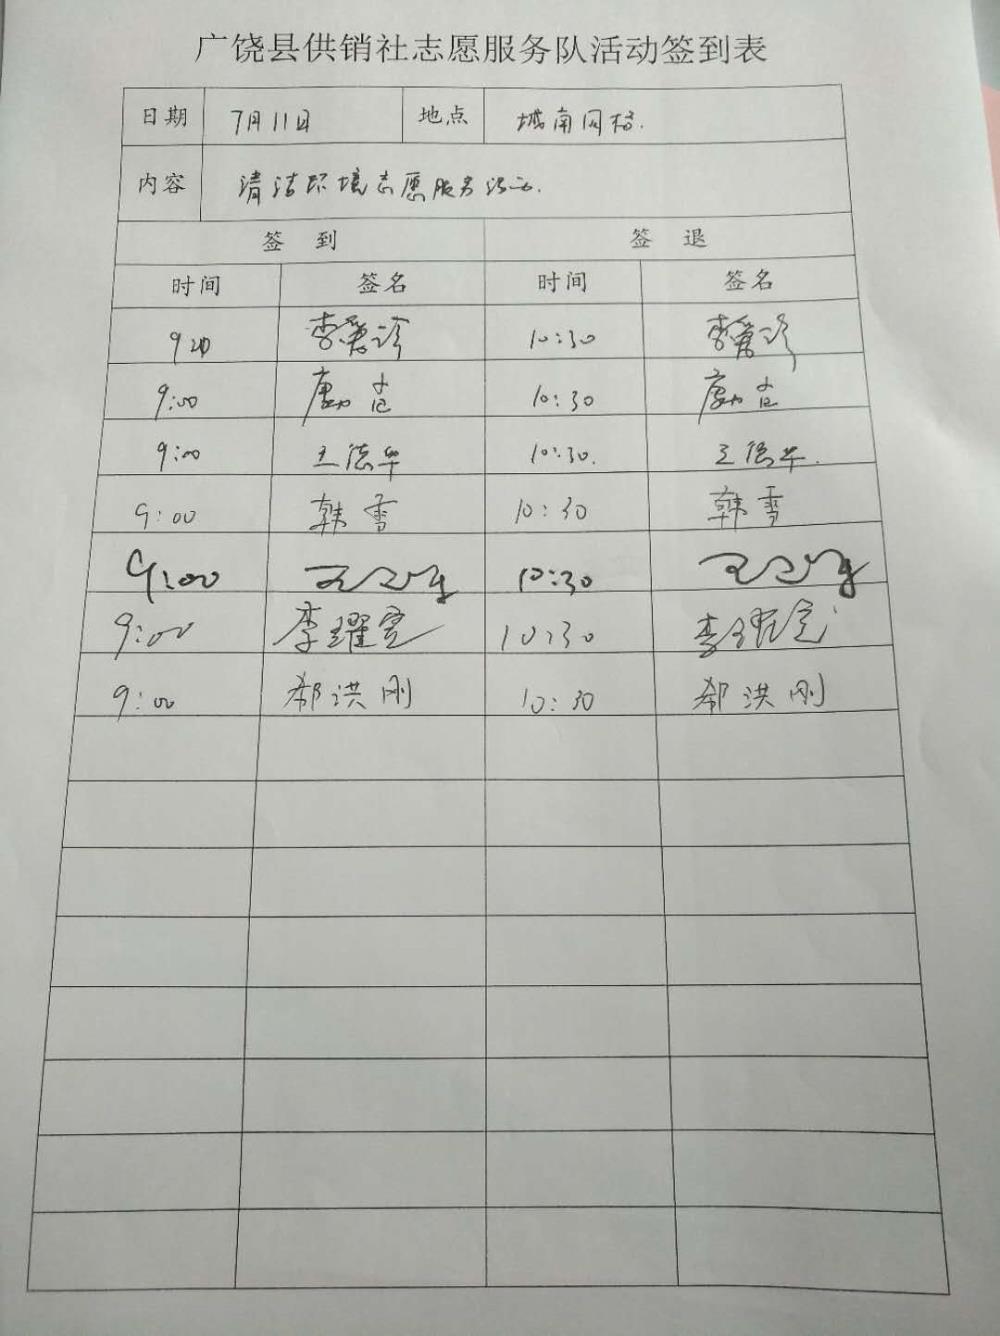 广饶县供销社志愿服务队活动签到表
日期 7月11日 地点 城南网格.
内容 清洁环境志愿服务活动.
签 到 签 退
时间 签名 时间 签名
9 李爱珍 10:30 李爱珍
9:00 唐 10:30 唐
9:00 王德华 10:30. 王德华.
9:00 韩雪 10:30 韩雪
9:00 王 10:30 王
9:00 李耀宽 10:30 李耀宽
9:00 郗洪刚 10:30 郗洪刚